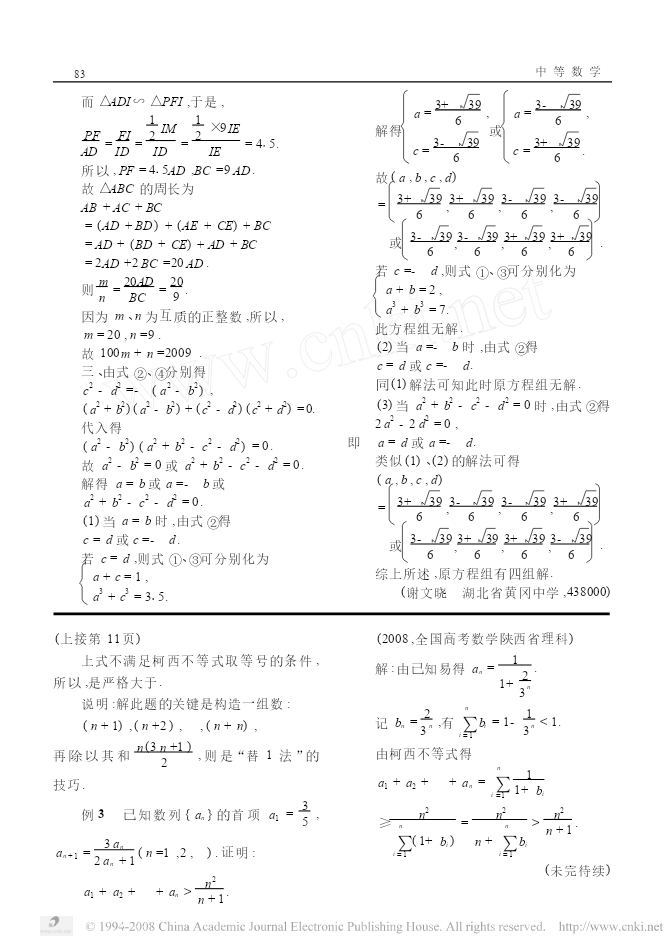 83
中 等 数 学
而 △ADI∽ △PFI ,于是 ,
PF/AD = FI/ID = (1/2 IM)/ID = (1/2 ×9 IE)/IE = 4. 5.
所以 , PF = 4. 5AD .BC =9 AD .
故 △ABC 的周长为
AB + AC + BC
= (AD + BD) + (AE + CE) + BC
= AD + (BD + CE) + AD + BC
= 2AD +2 BC =20 AD .
则 m/n = 20AD/BC = 20/9 .
因为 m 、n 为互质的正整数 ,所以 ,
m = 20 , n =9 .
故 100m + n =2009 .
三 、由式 ②、④分别得
c² - d² =- ( a² - b²) ,
( a² + b²) ( a² - b²) + ( c² - d²) ( c² + d²) = 0.
代入得
( a² - b²) ( a² + b² - c² - d²) = 0 .
故 a² - b² = 0 或 a² + b² - c² - d² = 0 .
解得 a = b 或 a =- b 或
a² + b² - c² - d² = 0 .
(1) 当 a = b 时 ,由式 ②得
c = d 或 c =- d.
若 c = d ,则式 ①、③可分别化为
a + c = 1 ,
a³ + c³ = 3. 5.
解得 { a = (3+ √39)/6 , c = (3- √39)/6 或 { a = (3- √39)/6 , c = (3+ √39)/6 .
故 ( a , b , c , d)
= ( (3+ √39)/6 , (3+ √39)/6 , (3- √39)/6 , (3- √39)/6 )
或 ( (3- √39)/6 , (3- √39)/6 , (3+ √39)/6 , (3+ √39)/6 ) .
若 c =- d ,则式 ①、③可分别化为
a + b = 2 ,
a³ + b³ = 7.
此方程组无解 .
(2) 当 a =- b 时 ,由式 ②得
c = d 或 c =- d.
同(1) 解法可知此时原方程组无解 .
(3) 当 a² + b² - c² - d² = 0 时 ,由式 ②得
2 a² - 2 d² = 0 ,
即 a = d 或 a =- d.
类似 (1) 、(2) 的解法可得
( a , b , c , d)
= ( (3+ √39)/6 , (3- √39)/6 , (3- √39)/6 , (3+ √39)/6 )
或 ( (3- √39)/6 , (3+ √39)/6 , (3+ √39)/6 , (3- √39)/6 ) .
综上所述 ,原方程组有四组解 .
(谢文晓 湖北省黄冈中学 ,438000)
(上接第 11 页)
上式不满足柯西不等式取等号的条件 ,
所以 ,是严格大于 .
说明 :解此题的关键是构造一组数 :
( n + 1) , ( n +2 ) , , ( n + n) ,
再除以其和 n(3 n +1 )/2 , 则是 “替 1 法 ”的
技巧 .
例 3 已知数列 { aₙ } 的首项 a₁ = 3/5 ,
aₙ₊₁ = 3 aₙ/(2 aₙ + 1) ( n =1 ,2 , ) . 证明 :
a₁ + a₂ + + aₙ > n²/(n + 1) .
(2008 ,全国高考数学陕西省理科)
解 :由已知易得 aₙ = 1/(1+ 2/3ⁿ) .
记 bₙ = 2/3ⁿ ,有 ∑ᵢ₌₁ⁿ bᵢ = 1- 1/3ⁿ < 1.
由柯西不等式得
a₁ + a₂ + + aₙ = ∑ᵢ₌₁ⁿ 1/(1+ bᵢ)
≥ n²/∑ᵢ₌₁ⁿ (1+ bᵢ) = n²/(n + ∑ᵢ₌₁ⁿ bᵢ) > n²/(n + 1) .
(未完待续)
www.cnki.net
© 1994-2008 China Academic Journal Electronic Publishing House. All rights reserved. http://www.cnki.net